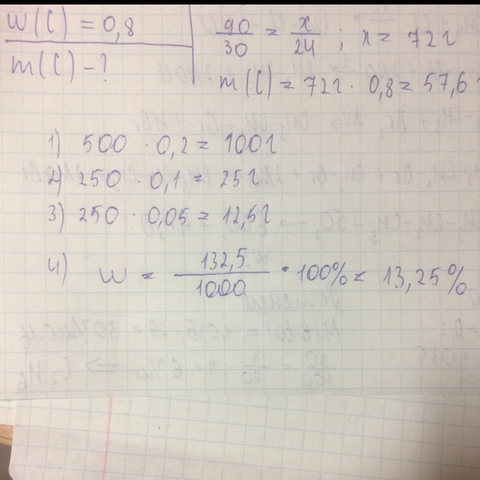 W(C) = 0,8
m(C) - ?
90/30 = x/24 ; x = 72г
m(C) = 72г · 0,8 = 57,6
1) 500 · 0,2 = 100г
2) 250 · 0,1 = 25г
3) 250 · 0,05 = 12,5г
4) w = 132,5/1000 · 100% = 13,25%